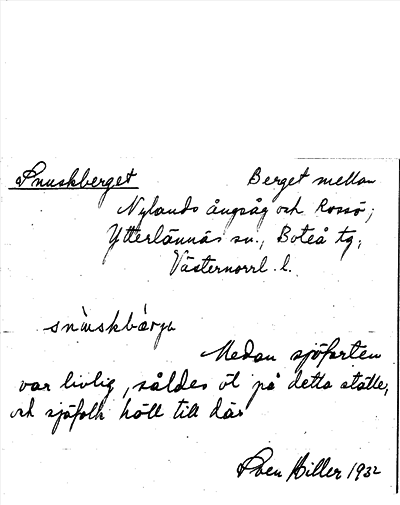 Snuskberget Berget mellan
Nylands ångsåg och Rossö,
Ytterlännäs sn., Boteå tg,
Västernorrl. l.
snuskbärju
Medan sjöfarten
var livlig, såldes öl på detta ställe,
och sjöfolk höll till där
Sven Hiller 1932